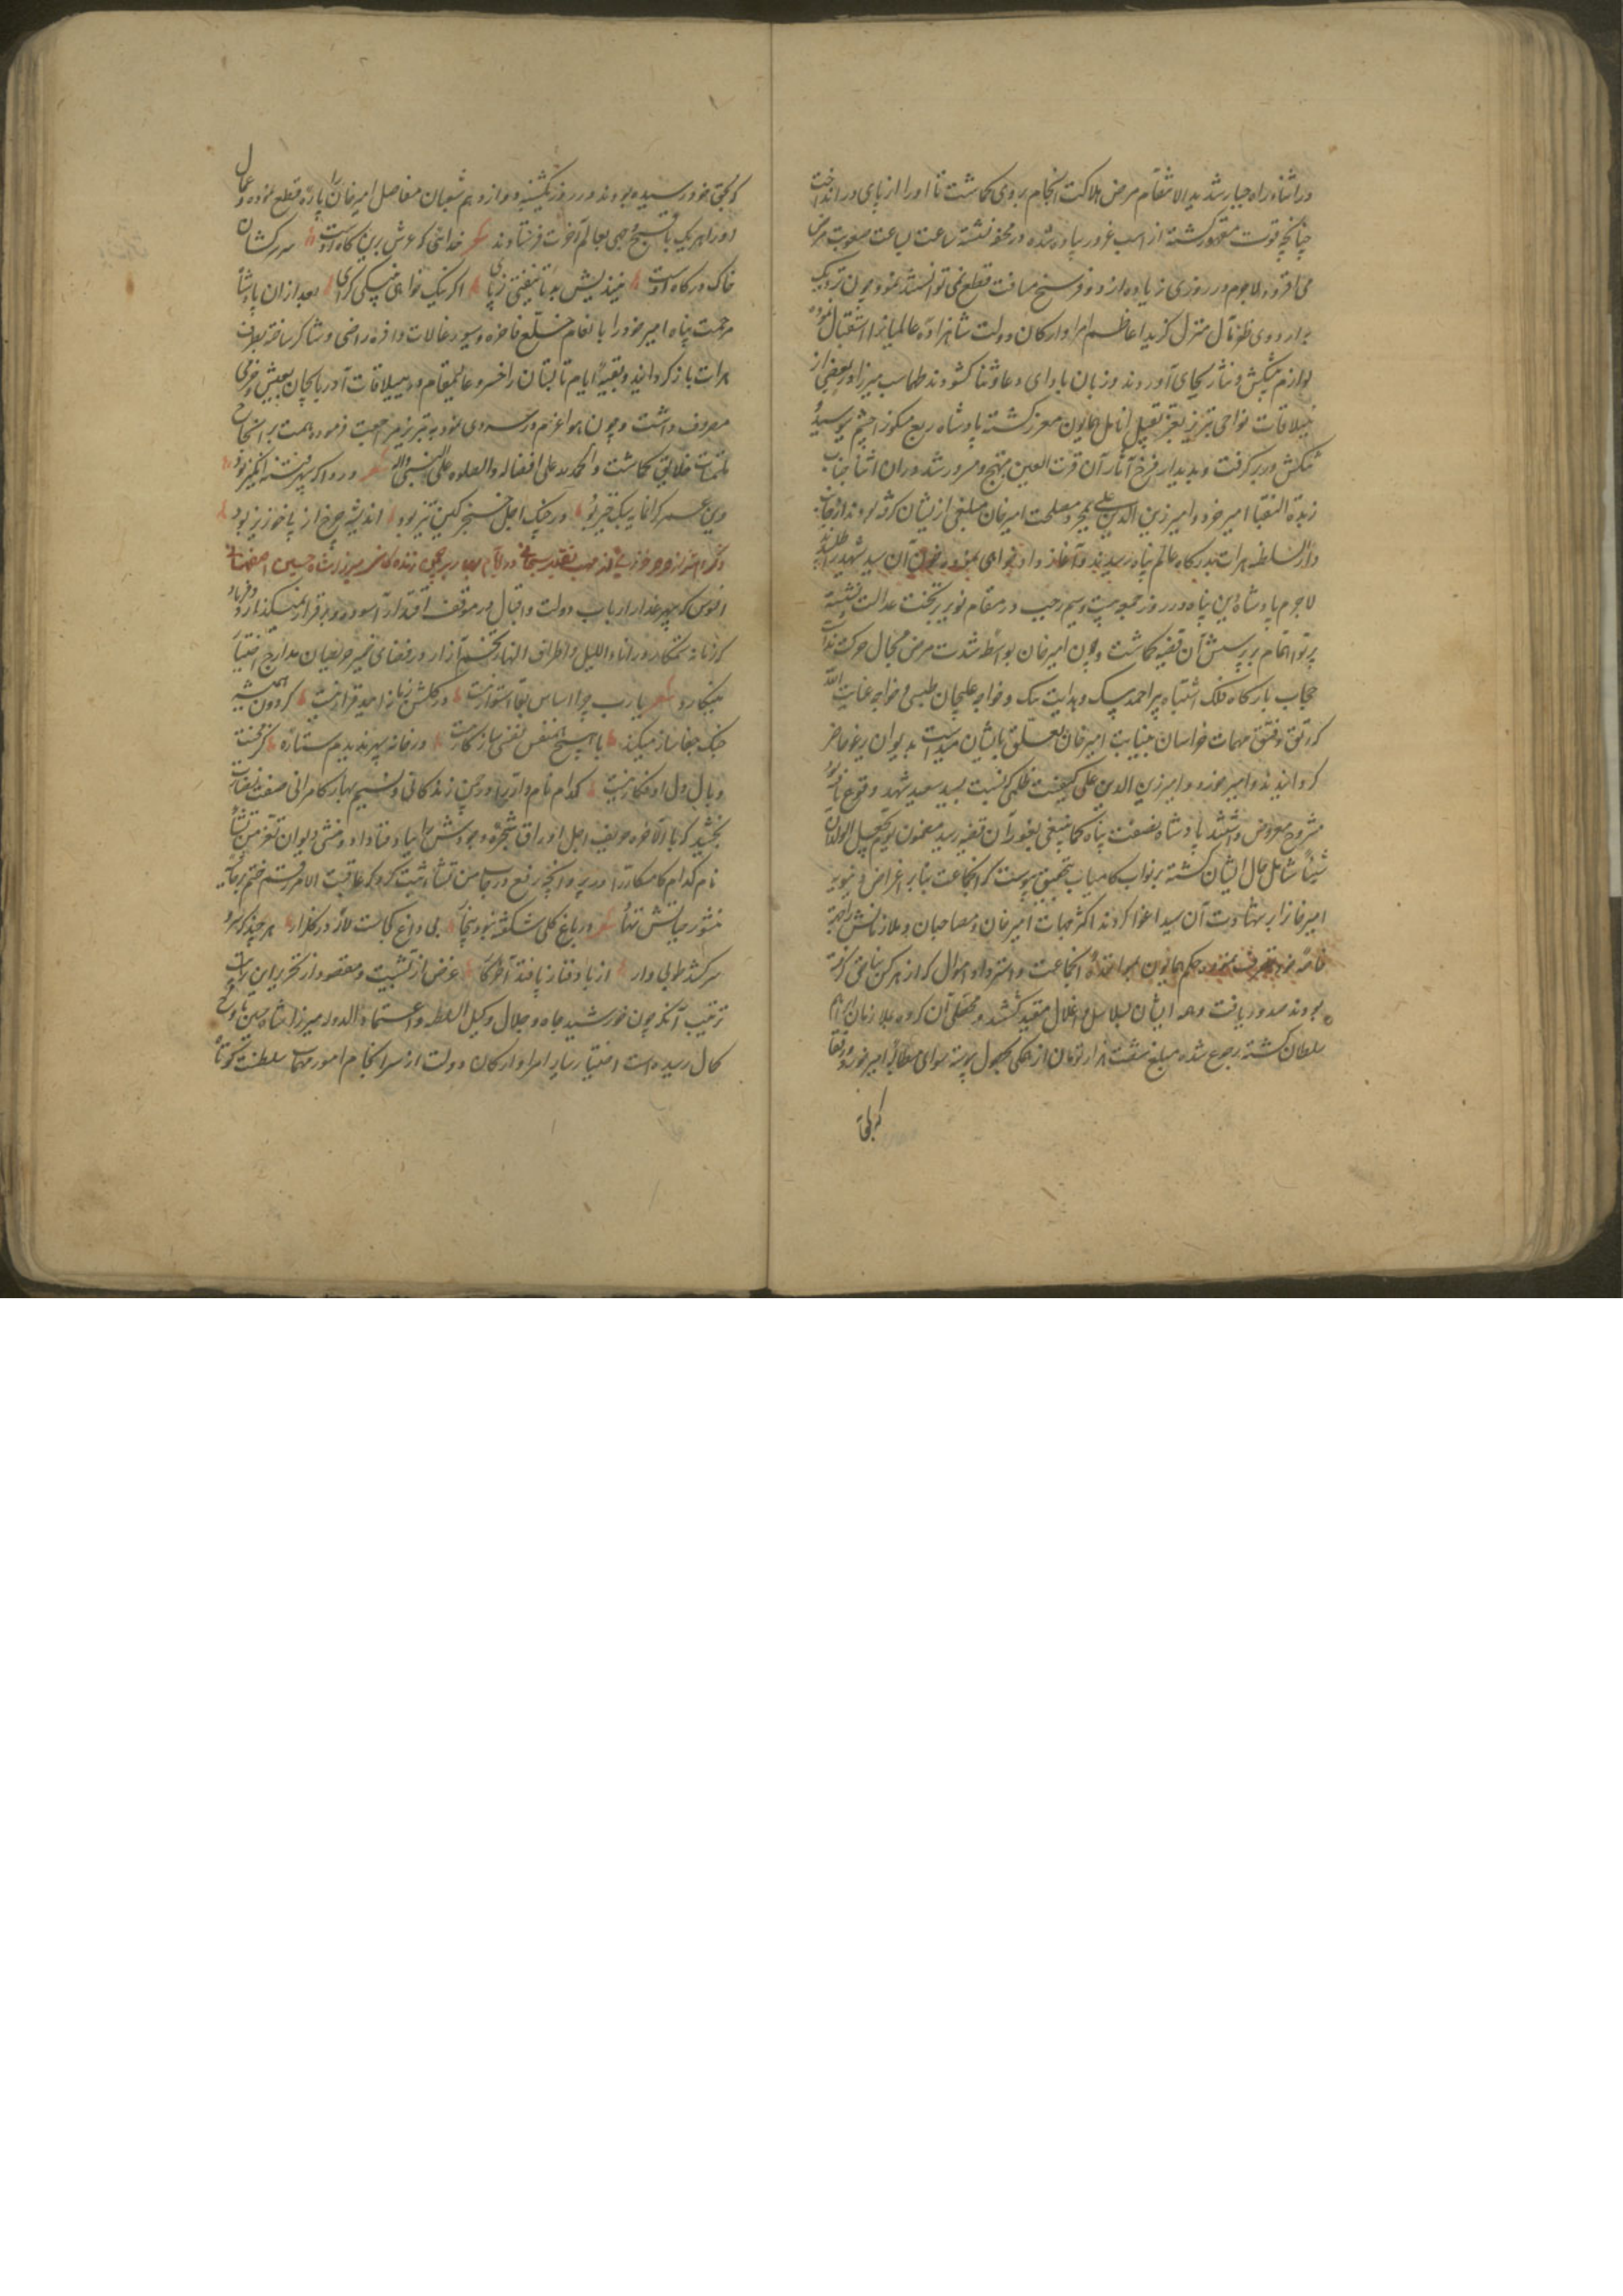 در اثناء راه جبار شدید الانتقام مرض هلاکت انجام بر وی گماشت تا او را از پای در انداخت
چنانچه قوت مقهور گشته از اسب غرور پیاده شده در محفه نشسته ساعت بساعت صعوبت مرض
می افزود لاجرم در روزی زیاده از دو فرسخ مسافت قطع نمی توانستند نمود چون نزدیک
باردوی ظفر مآل منزل گزید اعاظم امرا و ارکان دولت شاهزاده عالمیانرا استقبال نموده
لوازم پیشکش و نثار بجای آوردند و زبان بادای دعا و ثنا گشودند طهماسب میرزا در بعضی از
ییلاقات نواحی تبریز بعز تقبیل انامل همایون معزز گشته پادشاه ربع مسکون چشم بوسیده
تنگش در بر گرفت و بدیدار فرخ آثار آن قرت العین مبتهج و مسرور شد در ان اثنا جناب
زبدة النقبا امیر خرد و امیر زین الدین علی بجهة مصلحت امیرخان مبلغی ازیشان گرفته بودند از جانب
دار السلطنه هرات بدرگاه عالم پناه رسیدند و آغاز داد خواهی نموده خون آن سید شهید را طلبیدند
لاجرم پادشاه دین پناه در روز جمعه بیست و سیم رجب در مقام نویر بر تخت عدالت نشسته
پرتو اهتمام بر پرسش آن قضیه گماشت و چون امیرخان بواسطه شدت مرض مجال حرکت نداشت
حجاب بارگاه فلک اشتباه پیر احمد بیک و هدایت بیک و خواجه علیجان طبسی و خواجه عنایت الله
که رتق و فتق مهمات خراسان بنیابت امیرخان تعلق بایشان میداشت بدیوان یرغو حاضر
گردانیدند و امیر خورد و امیر زین الدین علی کیفیت ظلمی که نسبت بسید سعید شهید وقوع یافته بود
مشروح معروض داشتند پادشاه نصفت پناه کما ینبغی بغور آن قضیه رسید مضمون یوم یجعل الولدان
شیبا شامل حال ایشان گشته بر نواب کامیاب بتحقیق پیوست که انجماعت بنابر اغراض دنیویه
امیرخانرا بر شهادت آن سید اغوا کردند اکثر جهات امیرخان و مصاحبان و ملازمانش را جهة
خاصه خود تصرف نمود و حکم همایون بمواخذه انجماعت و استرداد اموال که از هر کس بناحق گرفته
بودند صدور یافت و همه ایشان بسلاسل و اغلال مقید گشتند و محصلی آن گروه بملازمان
سلطان گشته رجوع شده مبلغ هشت هزار تومان از همگی بحصول پیوسته سوای مطالبه امیر خورد و رفقا
که بحق
که بحق خود رسیده بودند و در روز یکشنبه دوازدهم شعبان مفاصل امیرخان را پاره قطع نموده و عمال
او را هر یک باقبح وجهی بعالم آخرت فرستادند شعر خدائی که عرش برین گاه اوست سر سرکشان
خاک درگاه اوست میندیش بد تا نیفتی ز پای اگر نیک خواهی به نیکی گرای بعد از ان پادشاه
مرحمت پناه امیر خورد را بانعام خلع فاخره و سیورغالات وافره راضی و شاکر ساخته بطرف
هرات باز گردانید و بقیه ایام تابستان را خسرو عالیمقام در ییلاقات آذربایجان بعیش و خرمی
مصروف داشت و چون هوا عزم در سردی نمود به تبریز مراجعت فرموده همت بر انجاح
ملتمسات خلایق گماشت و الحمد لله علی افضاله و الصلوه علی النبی و آله شعر دردا که سپهر فتنه انگیز بود
دین عمر گرانمایه سبک خیز بود در چنگ اجل خنجر کین تیز بود اندیشه چرخ از پا خونریز بود
ذکر میرزا شاه حسین اصفهانی
افسوس که سپهر غدار ارباب دولت و اقبال در موقف اقتدار آسوده و برقرار نمیگذارد و فریاد
که زمانه ستمکار در اناء اللیل و اطراف النهار تخم آزار در فضای ضمیر متوقعان مدارج اختیار
میکارد شعر یا رب چرا اساس بقا استوار نیست در گلشن زمانه امید قرار نیست گردون همیشه
چنگ جفا ساز میکند با هیچ همنفس نفسی سازگار نیست در خانه سپهر ندیدم ستاره کز محنت
وبال دل او فکار نیست کدام نام دار را در چمن زندگانی و نسیم بهار کامرانی صفت نضارت
بخشید که بالاخره حریف اجل اوراق شجره وجودش را بباد فنا نداد و منشی دیوان تعز من تشاء
نام کدام کامکار را در پروانچه رفع درجات من نشاء ثبت کرد که عاقبت الامر رقم ختم بر جریده
منشور حیاتش ننهاد شعر در باغ گلی شکفته نبود بیخار بی داغ کجاست لاله در گلزار هر چند که سرو
سرکشد طوبی وار از باد فنا ز پا فتد آخر کار غرض از تشبیب و مقصود از تحریر این
ترتیب آنکه چون خورشید جاه و جلال وکیل السلطنه و اعتماد الدوله میرزا شاه حسین باوج
کمال رسیده دست اختیار سایر امرا و ارکان دولت از سرانجام امور مهمات سلطنت کوتاه